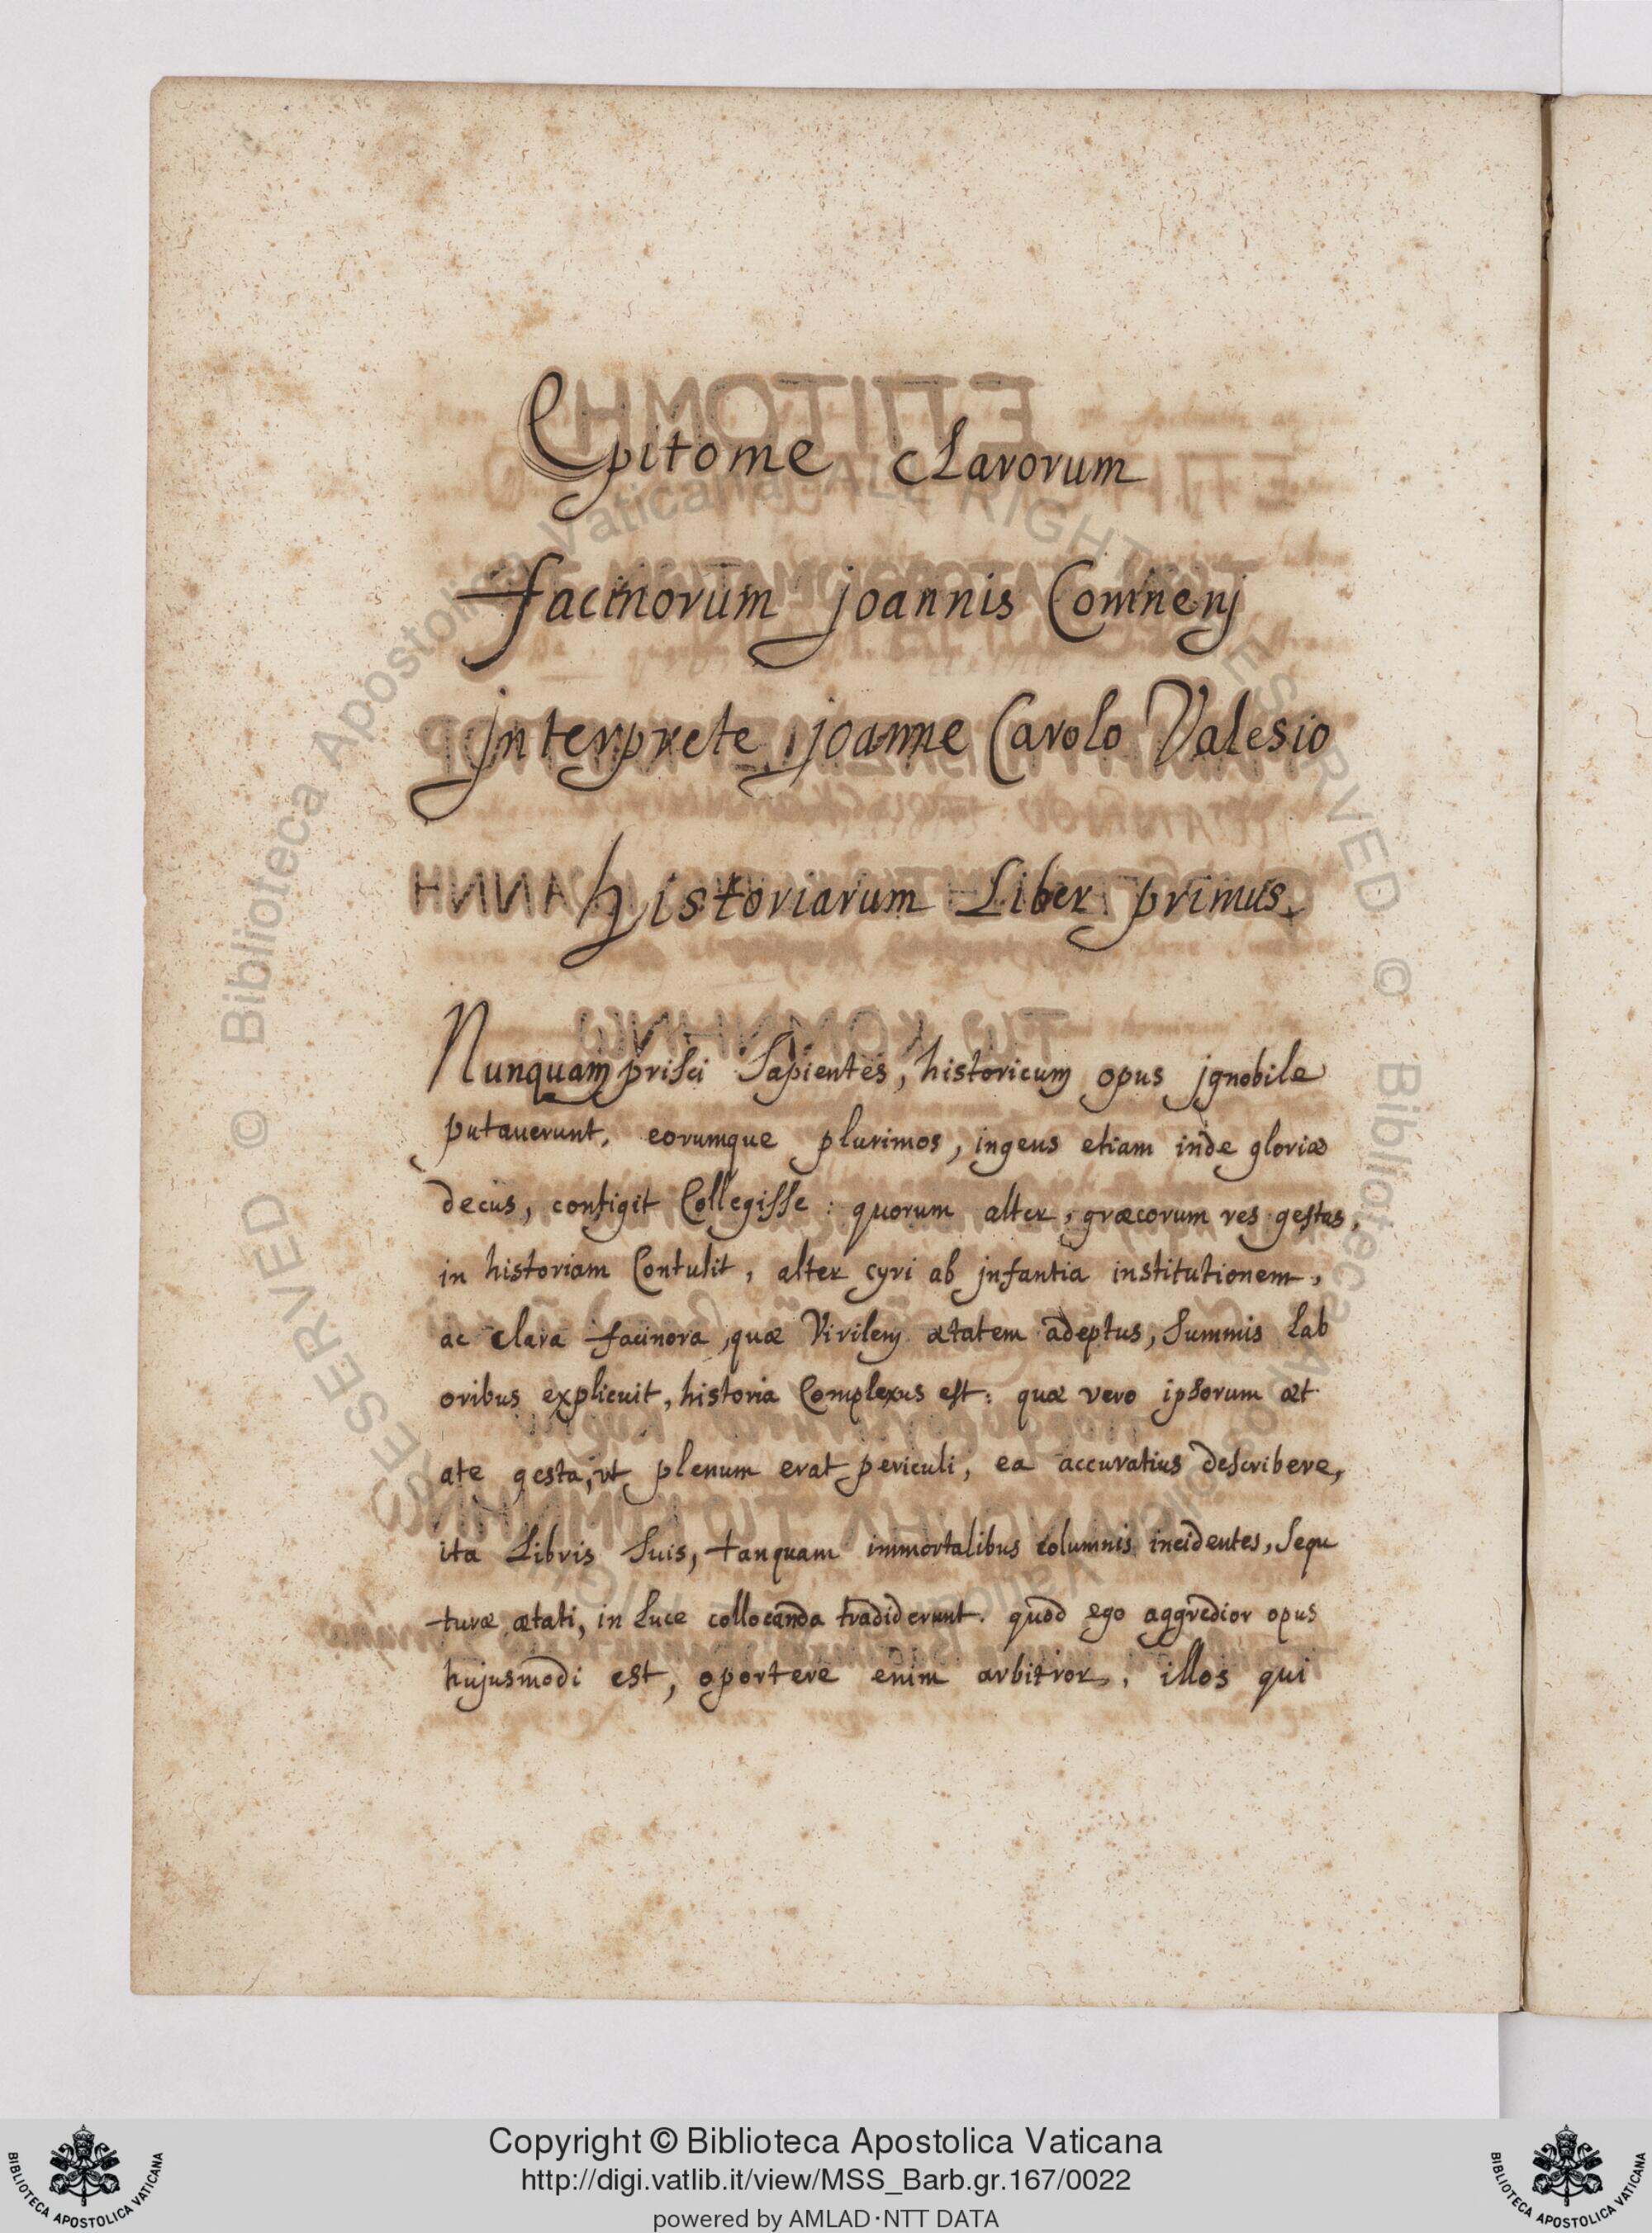 Epitome Clarorum
facinorum joannis Comnenj
jnterprete joanne Carolo Valesio
historiarum Liber primus.
Nunquam prisci Sapientes, historicum opus jgnobile
putauerunt, eorumque plurimos, ingens etiam inde gloriæ
decus, contigit Collegisse : quorum alter, græcorum res gestas,
in historiam Contulit, alter cyri ab jnfantia institutionem,
ac clara facinora, quæ Virilem ætatem adeptus, Summis Lab
oribus explicuit, historia Complexus est: quæ vero ipsorum æt
ate gesta, vt plenum erat periculi, ea accuratius describere,
ita Libris Suis, tanquam immortalibus columnis incidentes, Sequ
turæ ætati, in Luce collocanda tradiderunt. quod ego aggredior opus
hujusmodi est, oportere enim arbitror, illos qui
Copyright © Biblioteca Apostolica Vaticana
http://digi.vatlib.it/view/MSS_Barb.gr.167/0022
powered by AMLAD·NTT DATA
BIBLIOTECA APOSTOLICA VATICANA
BIBLIOTECA APOSTOLICA VATICANA